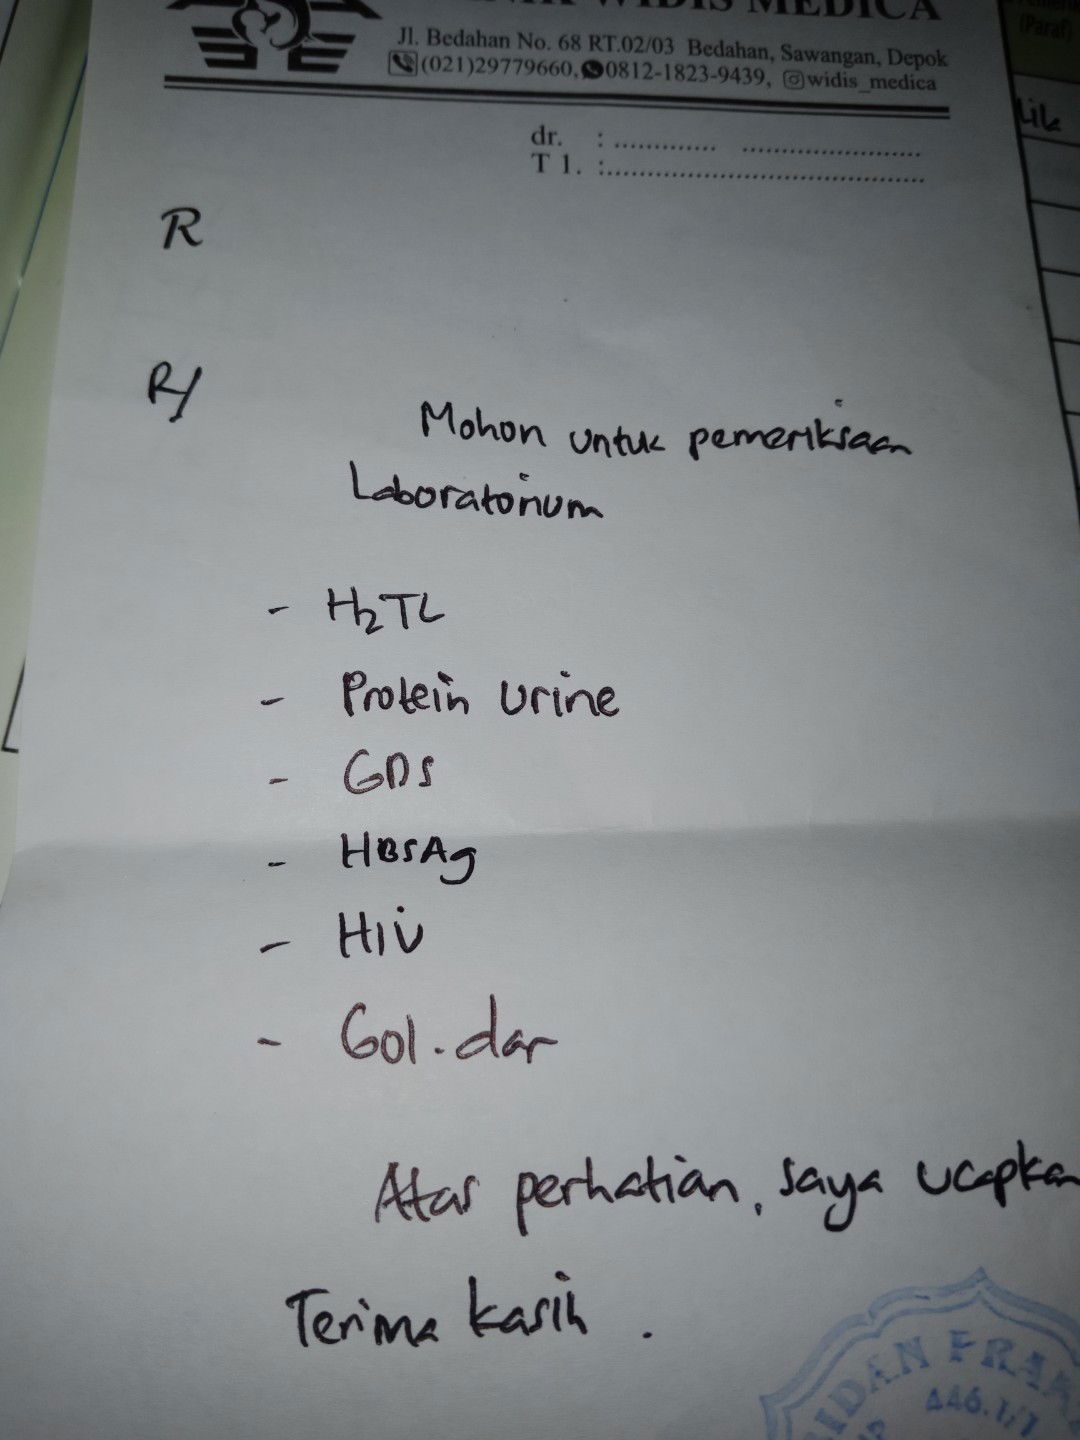 WIDIS MEDICA
Jl. Bedahan No. 68 RT.02/03 Bedahan, Sawangan, Depok
(021)29779660, 0812-1823-9439, widis_medica
(Paraf)
dr. : ............. .......................
T 1. :.........................................
R
R/
Mohon untuk pemeriksaan
Laboratorium
- H2TL
- Protein urine
- GDS
- HBSAg
- HIV
- Gol. dar
Atas perhatian, saya ucapkan
Terima kasih .
BIDAN PRAK
446.1/1